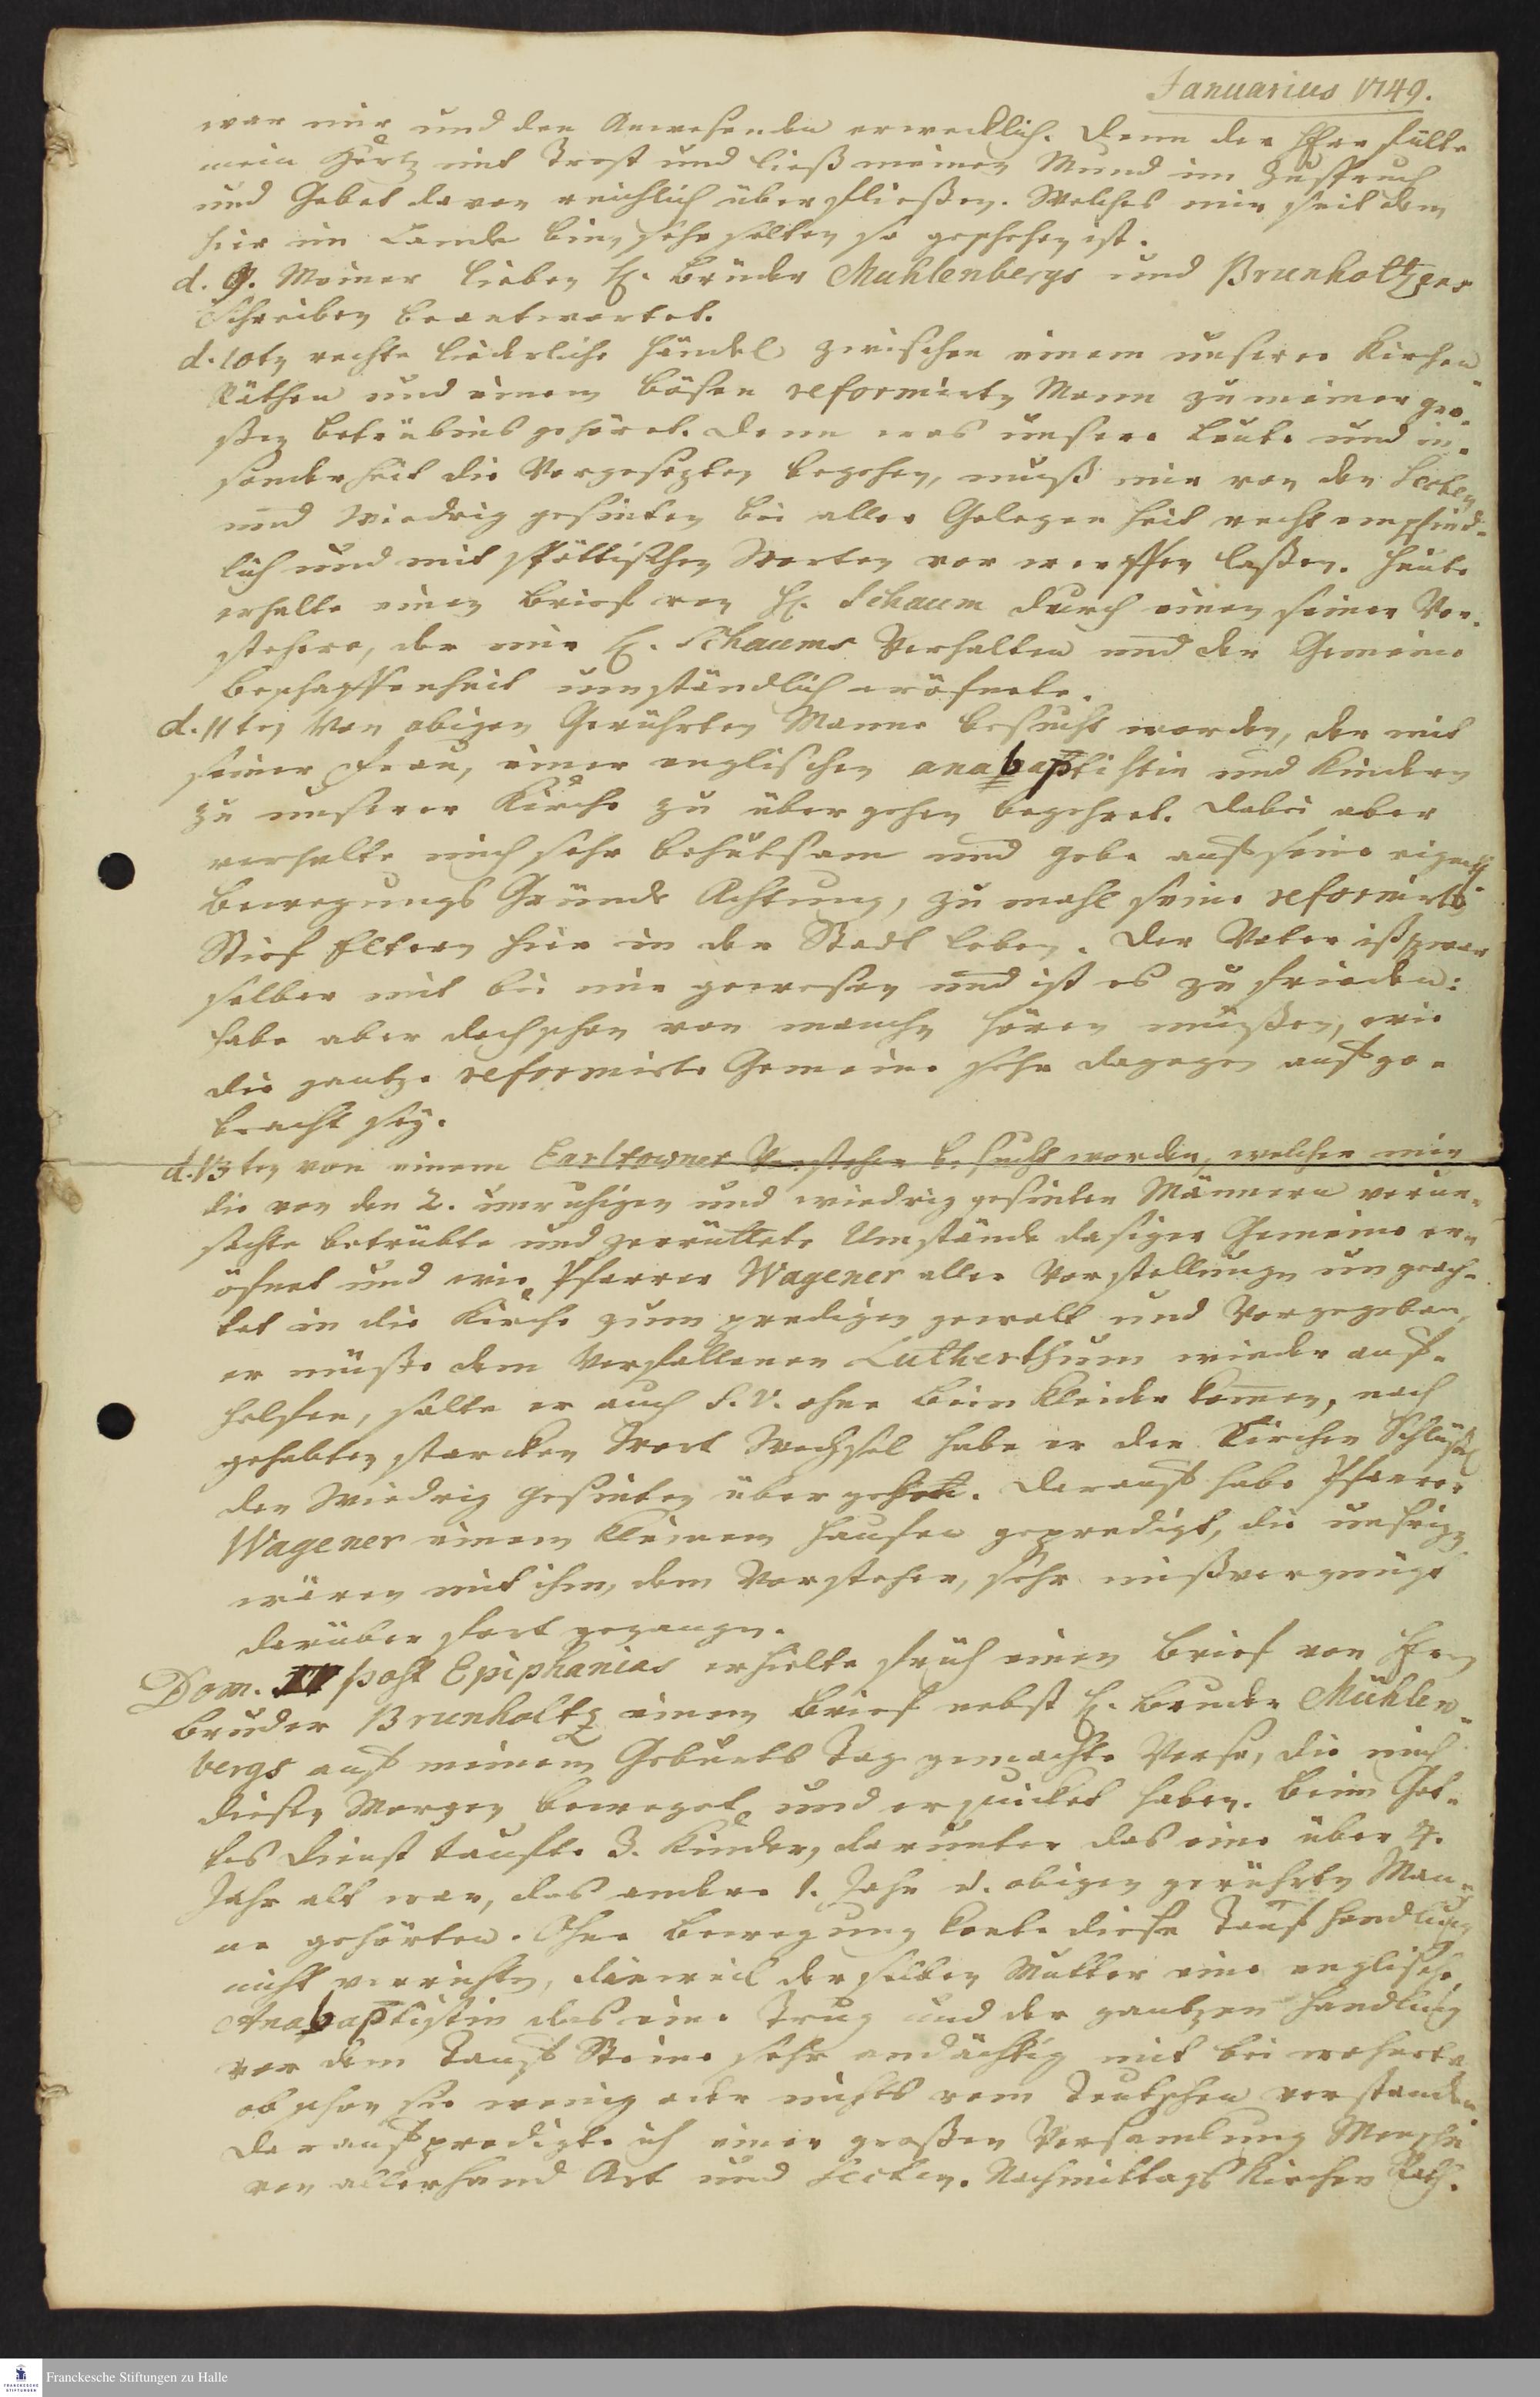 Januarius 1749.
war mir und den Anwesenden erwecklich. Denn der HErr füllte
mein Hertz mit Trost und ließ meinen Mund im Zuspruch
und Gebet davon reichlich überfließen. Welches mir seit dem
hier im Lande bin, sehr selten so geschehen ist.
d. 9. Meiner lieben H. Brüder Muhlenbergs und Brunholtzens
Schreiben beantwortet.
d. 10ten rechte liederliche Händel zwischen einem unserer Kirchen
Räthen und einem bösen reformirten Mann zu meiner gro¬
ßen Betrübnis gehöret. Denn was unsere Leute und in¬
sonderheit die Vorgesezten begehen, muß mir von den Secten
und Wiedrig gesinten bei aller Gelegenheit recht empfind¬
lich und mit spöttischen Worten vor werffen laßen. Heute
erhalte einen Brief von H. Schaum durch einen seiner Vor¬
stehere, der mir H. Schaums Verhalten und der Gemeine
Beschaffenheit umständlich eröfnete.
d. 11ten Von obigen Gerührten Manne besucht worden, der mit
seiner Frau, einer englischen anabaptistin und Kindern
zu unserer Kirche zu über gehen begehret. Dabei aber
verhalte mich sehr behutsam und gebe auf seine eigentl.
Bewegungs Gründe Achtung, zu mahl seine reformirte
Stief Eltern hier in der Stadt leben. Der Vater ist zwar
selber mit bei mir gewesen und ist es zu frieden:
habe aber doch schon von manchen hören müßen, wie
die gantze reformirte Gemeine sehr dagegen aufge¬
bracht sey.
d. 13ten von einem Earltowner Vorsteher besucht worden, welcher mir
die von den 2. unruhigen und wiedrig gesinten Männern verur¬
sachte betrübte und zerrüttete Umstände dasiger Gemeine er¬
öfnet und wie Pfarrer Wagener aller Vorstellungen ungeach¬
tet in die Kirche zum predigen gewolt und Vorgegeben,
er müste dem Verfallenen Lutherthum wieder auf¬
helfen, solte er auch S. V. ohne Bein Kleider komen, nach
gehabten starcken Wort Wechsel habe er den Kirchen Schlüßel
den Wiedrig Gesinten über geben. Darauf habe Pfarrer
Wagener einem kleinen Haufen geprediget, die unsrigen
wären mit ihm, dem Vorsteher, sehr mißvergnügt
darüber fort gegangen.
Dom. II post Epiphanias erhielte früh einen Brief von Hrn
Bruder Brunholtz einen Brief nebst H. Bruder Mühlen¬
bergs auf meinem Geburts Tag gemachte Verse, die mich
diesen Morgen beweget und erquicket haben. Beim Got¬
tes Dienst taufte 3. Kinder, darunter das eine über 4.
Jahr alt war, das andere 1. Jahr d. obigen gerührten Man¬
ne gehörten. Ohne Bewegung konte diese Tauf Handlung
nicht verrichten, dieweil derselben Mutter eine englische
Anabaptistin das eine Trug und der gantzen Handlung
vor dem Tauf Steine sehr andächtig mit bei wohnete
obschon sie wenig oder nichts vom Teutschen verstanden.
Darauf predigte ich einer großen Versamlung Menschen
von allerhand Art und Secten. Nachmittags Kirchen Rath.
Franckesche Stiftungen zu Halle